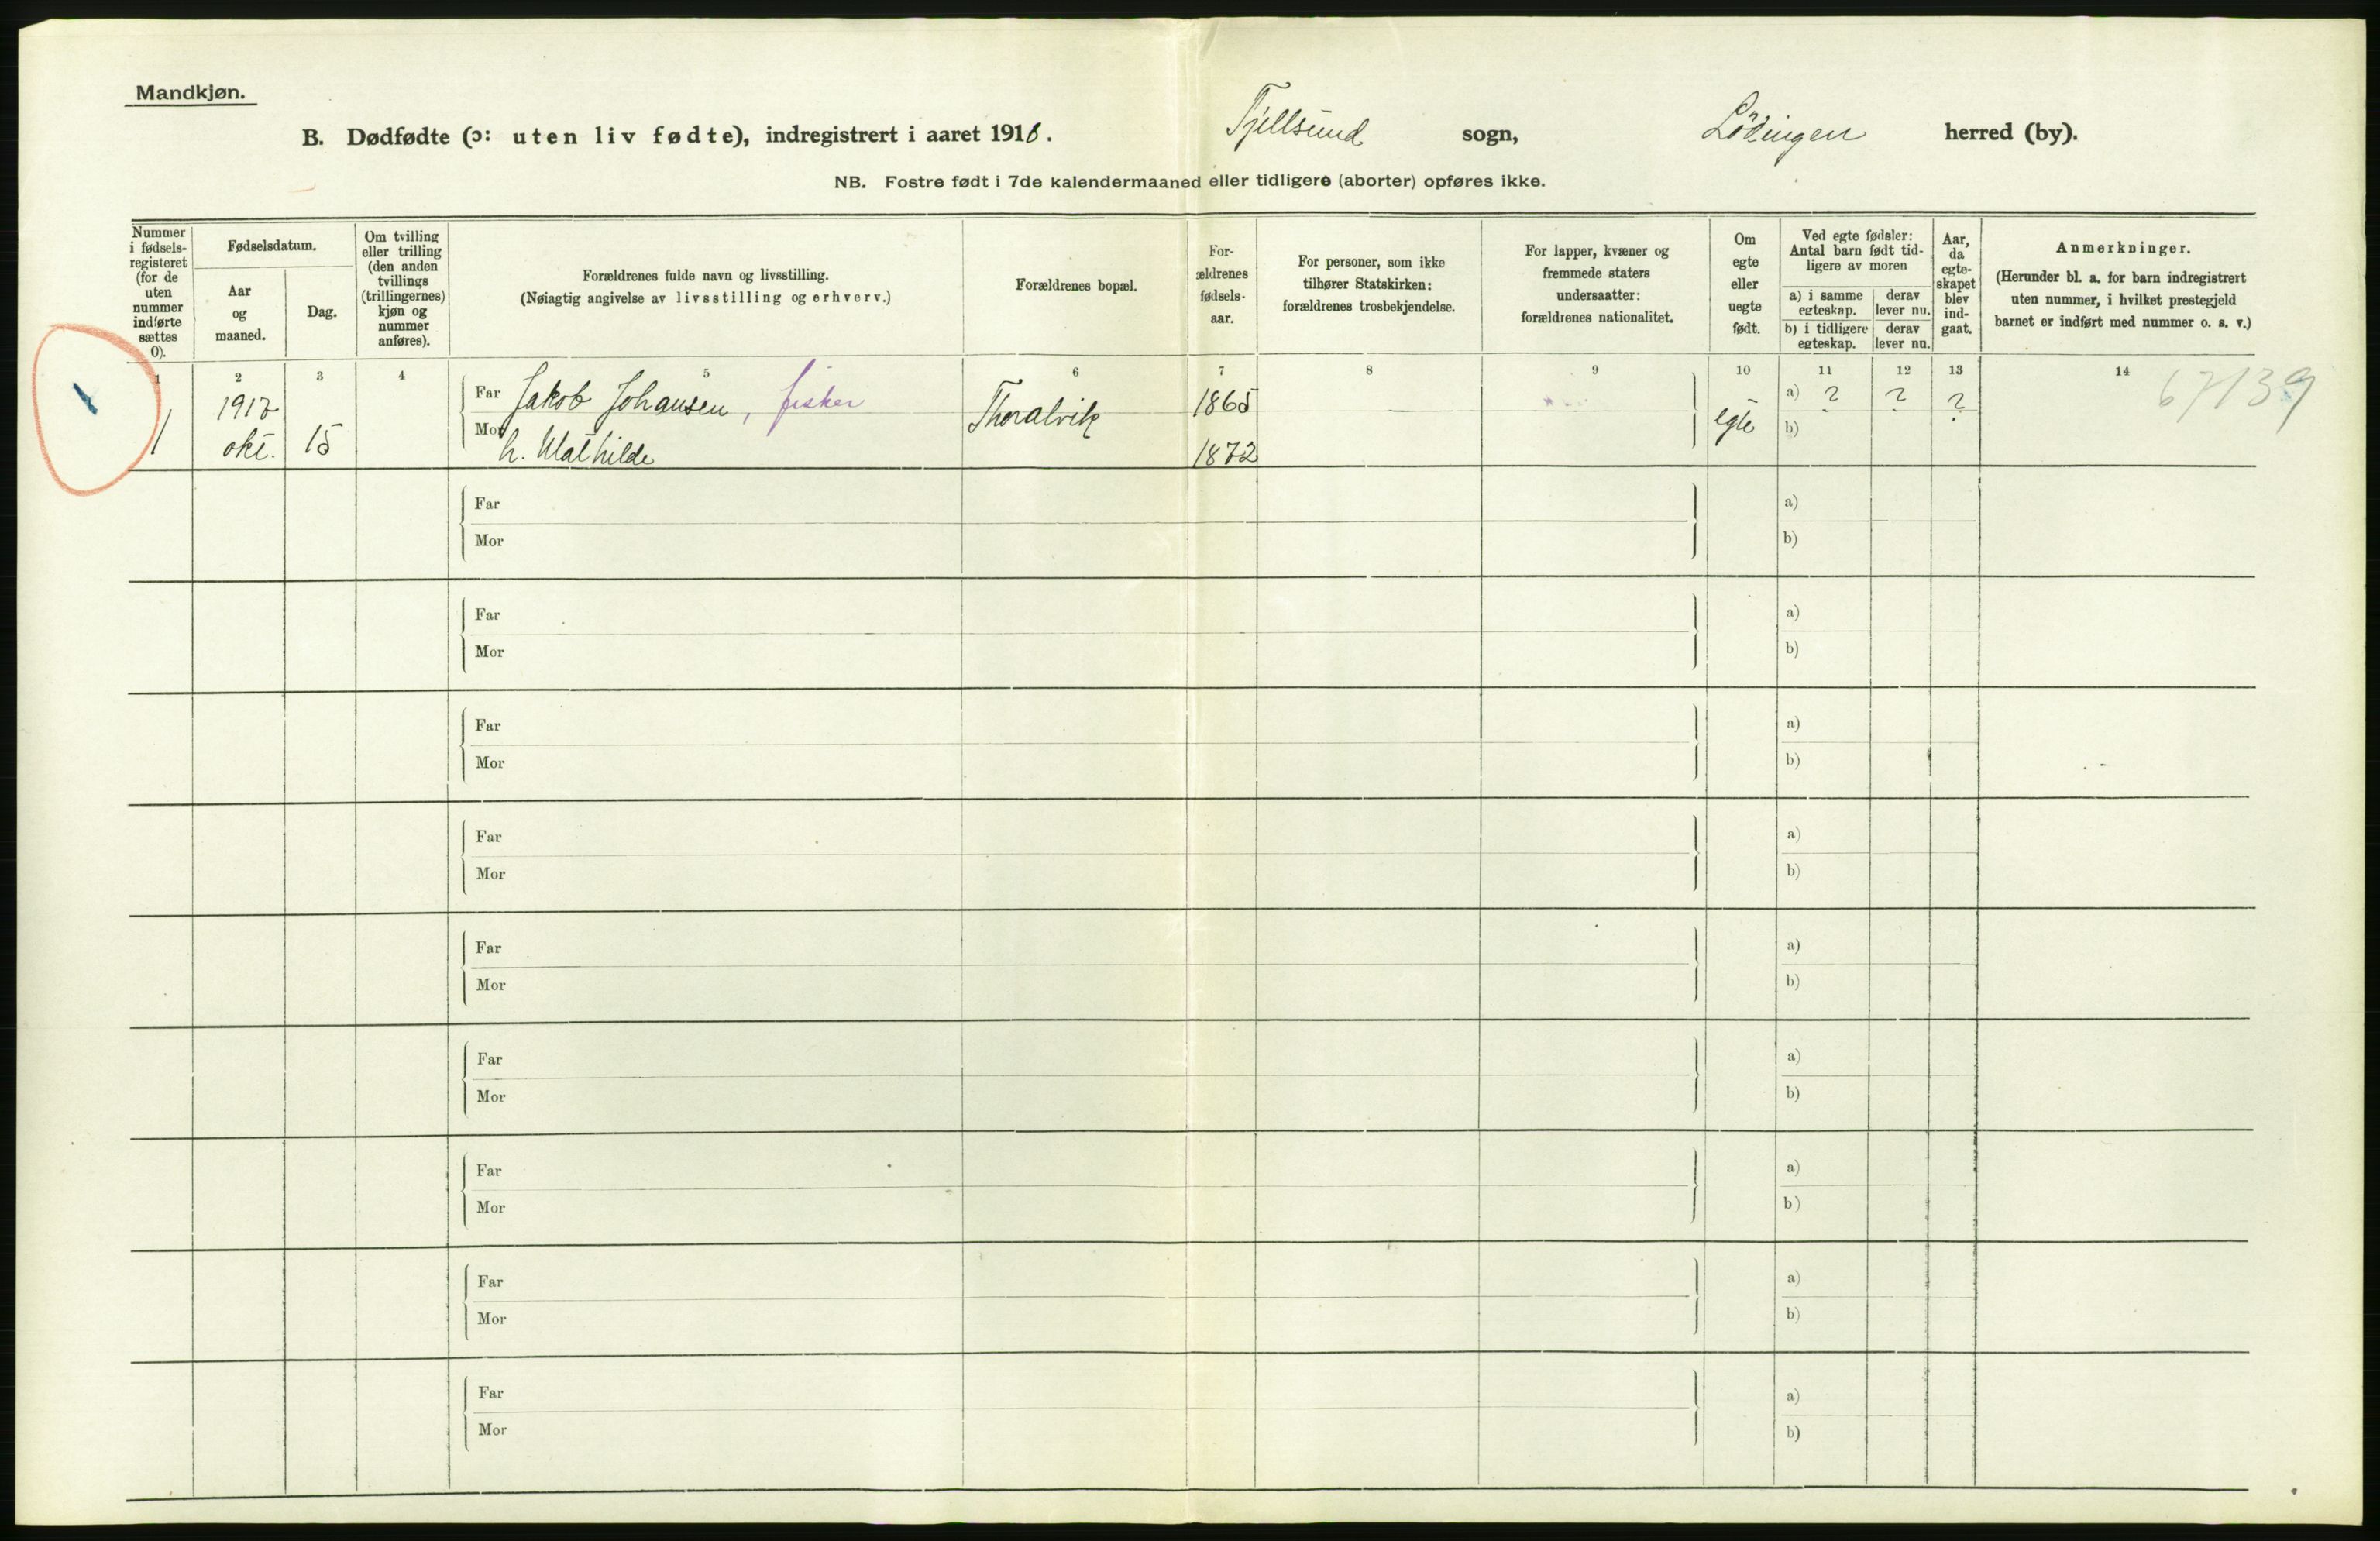 Mandkjøn.
B. Dødfødte (ɔ: uten liv fødte), indregistrert i aaret 1918. Tjellsund sogn, Lödingen herred (by).
NB. Fostre født i 7de kalendermaaned eller tidligere (aborter) opføres ikke.
Nummer i fødsels-registeret (for de uten nummer indførte sættes 0).
Fødselsdatum.
Aar og maaned.
Dag.
Om tvilling eller trilling (den anden tvillings (trillingernes) kjøn og nummer anføres).
Forældrenes fulde navn og livsstilling.
(Nøiagtig angivelse av livsstilling og erhverv.)
Forældrenes bopæl.
For-ældrenes fødsels-aar.
For personer, som ikke tilhører Statskirken: forældrenes trosbekjendelse.
For lapper, kvæner og fremmede staters undersaatter: forældrenes nationalitet.
Om egte eller uegte født.
Ved egte fødsler: Antal barn født tid-ligere av moren
a) i samme egteskap.
derav lever nu.
b) i tidligere egteskap.
derav lever nu.
Aar, da egte-skapet blev ind-gaat.
Anmerkninger.
(Herunder bl. a. for barn indregistrert uten nummer, i hvilket prestegjeld barnet er indført med nummer o. s. v.)
1 2 3 4 5 6 7 8 9 10 11 12 13 14
1
1 1917 okt. 15
Far Jakob Johansen, fisker Thoralvik 1865 — egte a) ? ? ?
Mor h. Mathilde 1872 b)
67139
Far a)
Mor b)
Far a)
Mor b)
Far a)
Mor b)
Far a)
Mor b)
Far a)
Mor b)
Far a)
Mor b)
Far a)
Mor b)
Far a)
Mor b)
Far a)
Mor b)